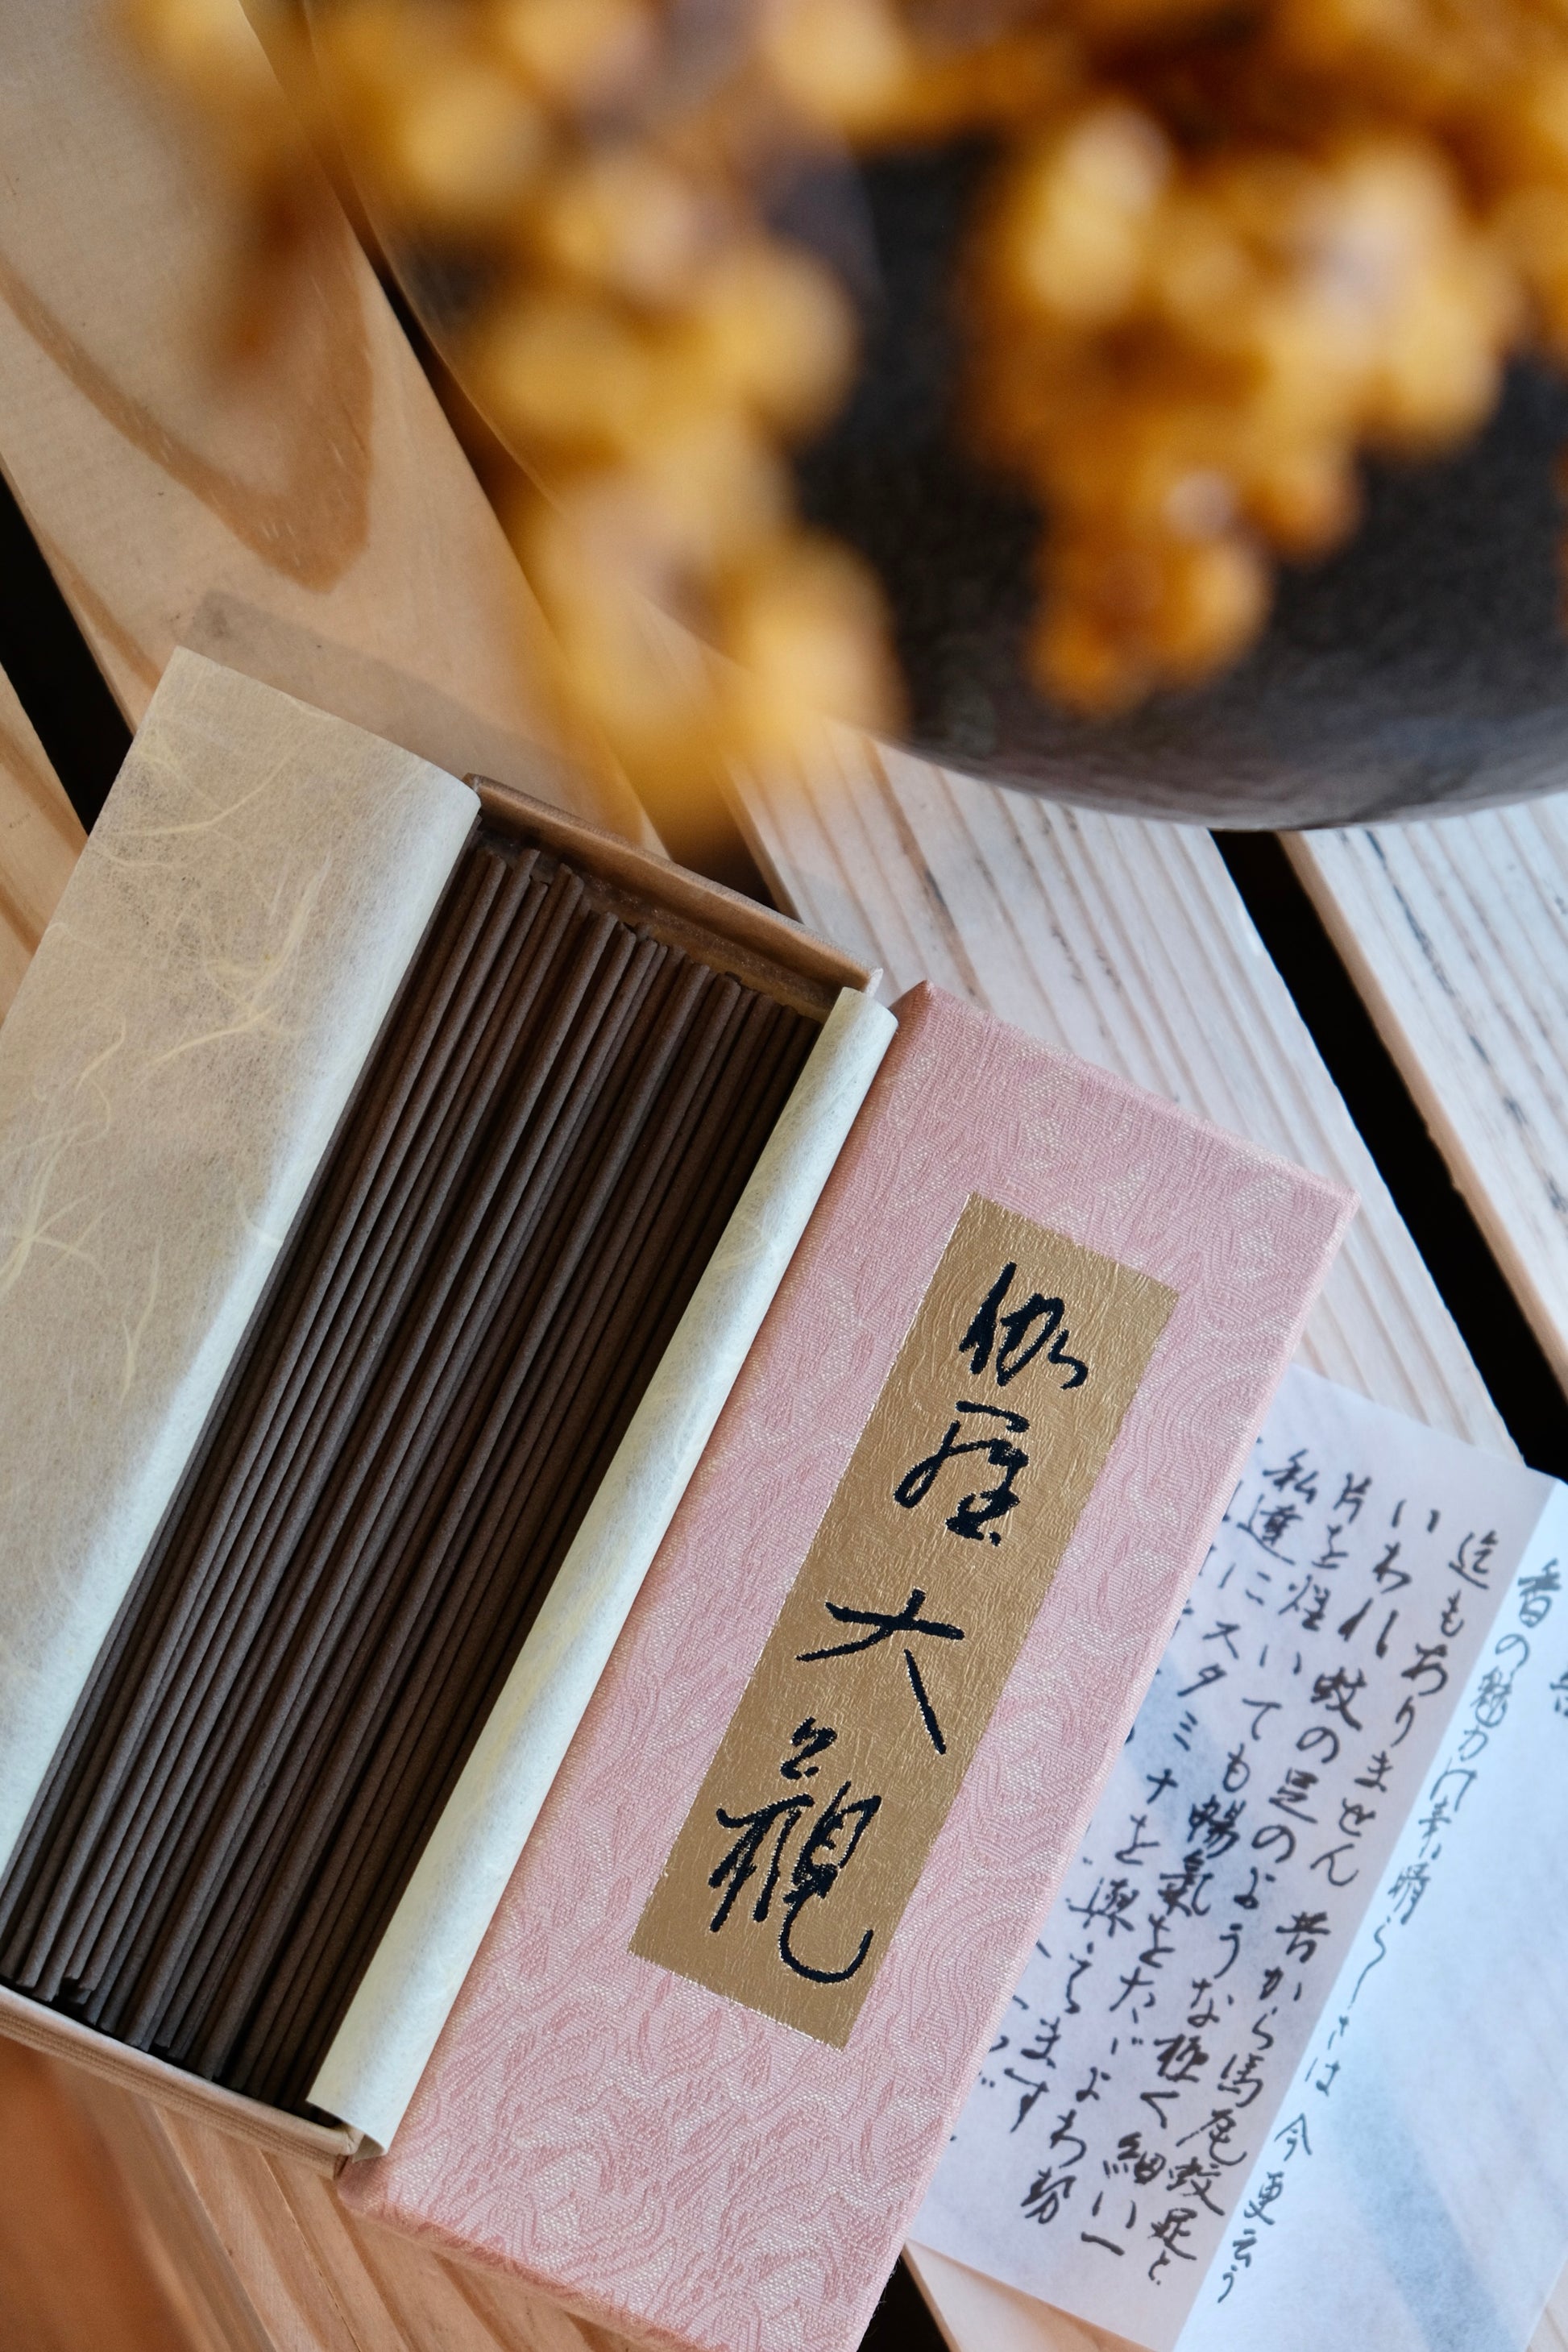 伽羅大観
香の魅力の素晴らしさは 今更云う
迄もありません 昔から馬尾蚊足と
いわれ 蚊の足のような極く細い一
片を炷いても暢氣をたゞよわ勢
私達にスタミナを與えてます